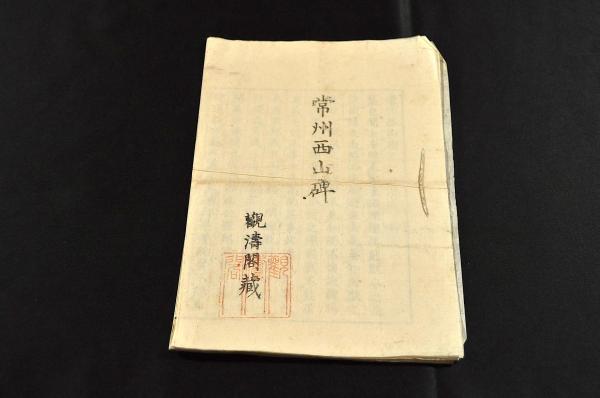 常州西山碑
觀濤閣藏